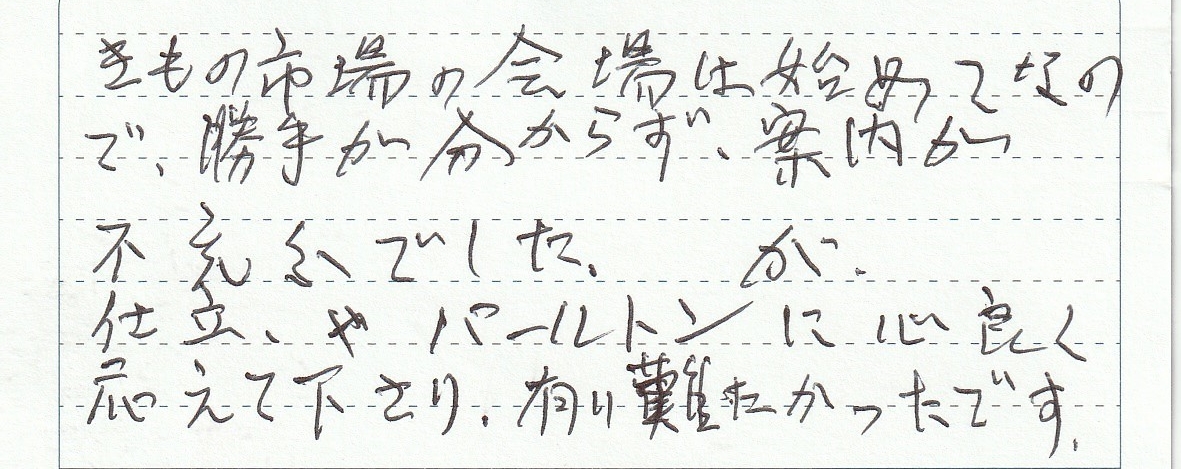 きもの市場の会場は始めてなの
で、勝手が分からず、案内が
不充分でした、が、
仕立、や パールトンに心良く
応えて下さり、有り難たかったです。